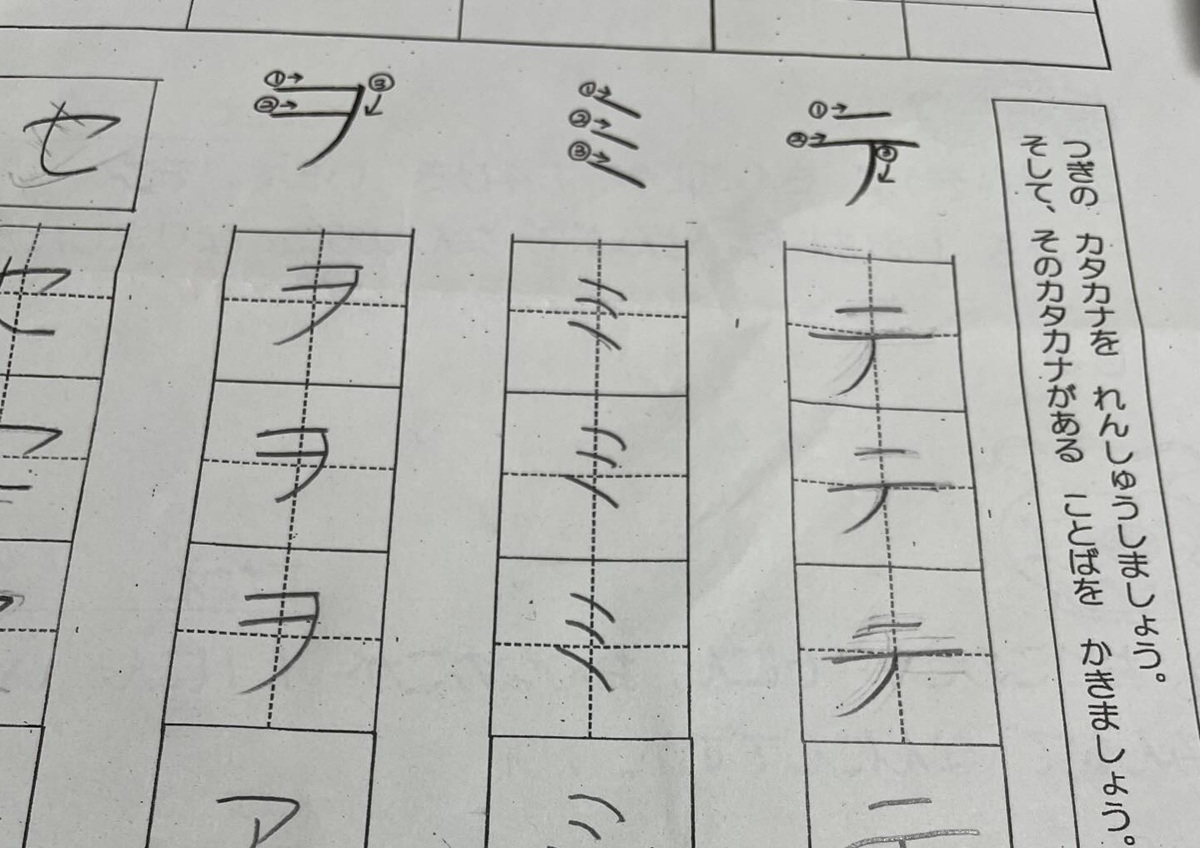 つぎの カタカナを れんしゅうしましょう。
そして、そのカタカナがある ことばを かきましょう。
① ② ③ テ
テ
テ
テ
① ② ③ ミ
ミ
ミ
ミ
① ② ③ ヲ
ヲ
ヲ
ヲ
ア
セ
セ